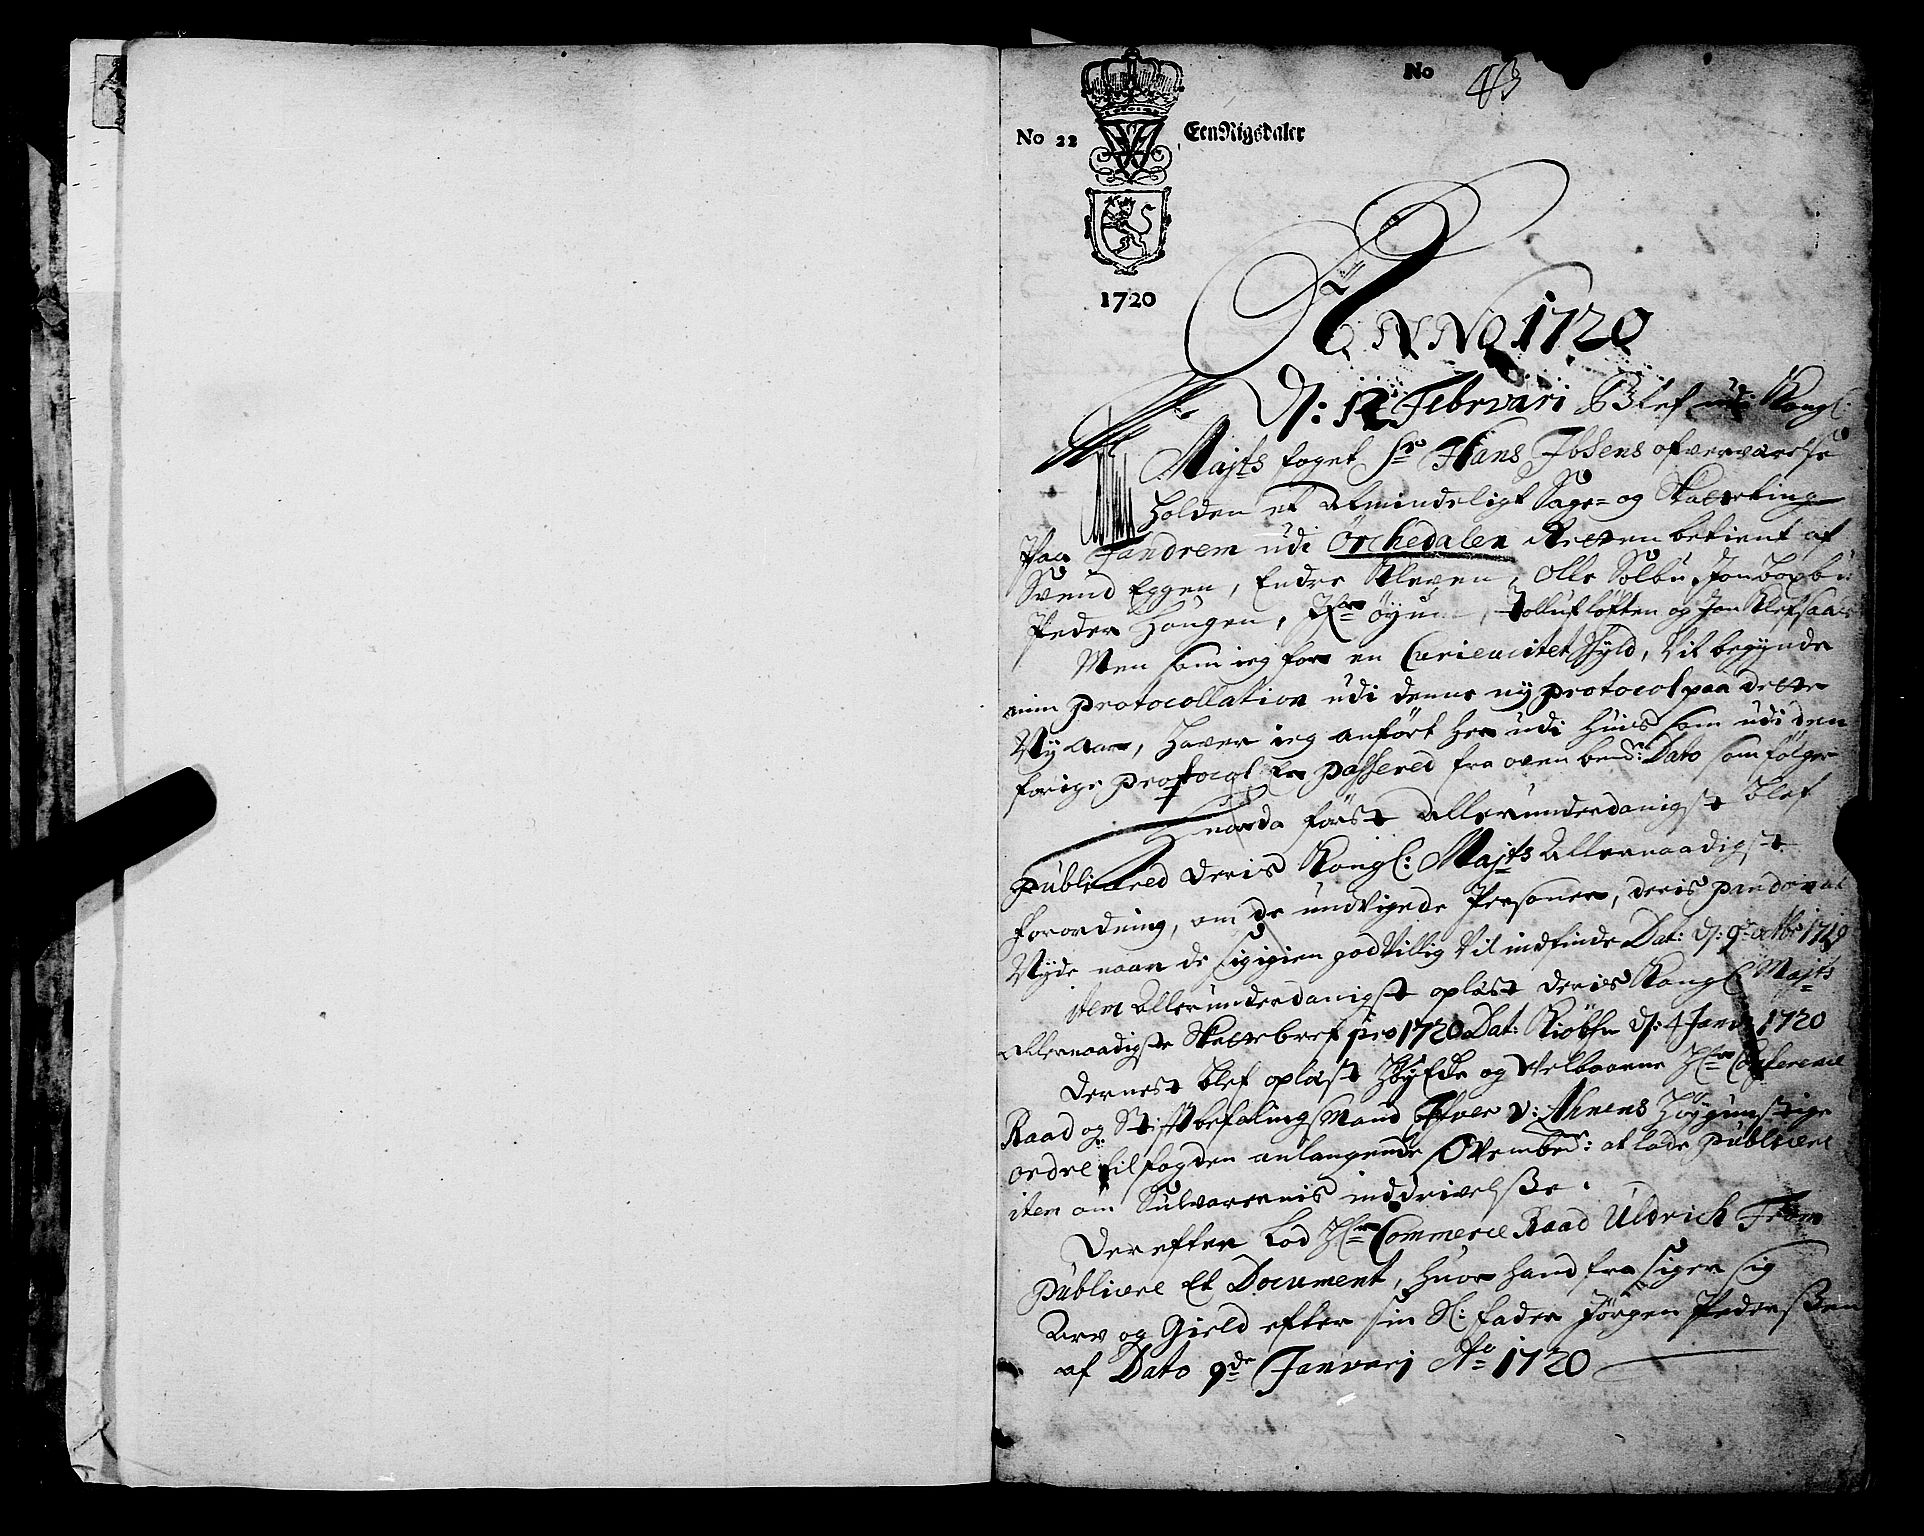 No 43
No 22 Een Rigsdaler
1720
ANNO 1720
D: 12 Februari Blef udi Kongl:
Majts foget Sr Hans Ibsens ofverværelse
holden et almindeligt Sage- og Skatteting
Paa Fandrem udi Örchedalen Retten betient af
Svend Eggen, Endre Kleven, Olle Solbu, Jon
Peder Hougen, Øyum, Tolluf løften og Jon
Men som ieg for en Curieusitet skyld, Vil begynde
min Protocollation udi denne ny protocol paa dette
Ny aar, haver ieg anført her udi huis som udi den
forige protocol Er passered fra oven bemte: Dato som følger
Huorda først allerunderdanigst blef
publicered deris Kongl: Majts Allernaadigste
forordning, om de undvigede Personer, deris pardon at
Nyde naar de sig igien godvillig Vil indfinde Dat: d: 9de octbr 1719
item Allerunderdanigst oplæst deris Kongl Majts
allernaadigste Skattebref pro 1720 Dat: Kiöbhn d: 4 Janv: 1720
Dernest blef oplæst Høy Edle og Velbaarne Hr Conference
Raad og Stiftbefalings Mand Ifver v: Ahnens Høygunstige
ordre til fogden anlangende Ovembte: at lade publicere
item om Sølvarernis inddrivelsße.
Derefter Lod Hr Commerce Raad Uldrich From
publicere Et Document, huor hand fra siger sig
Arv og Gield efter sin Sl: fader Jörgen Pederßen
af Dato 9de Januarj Ao 1720